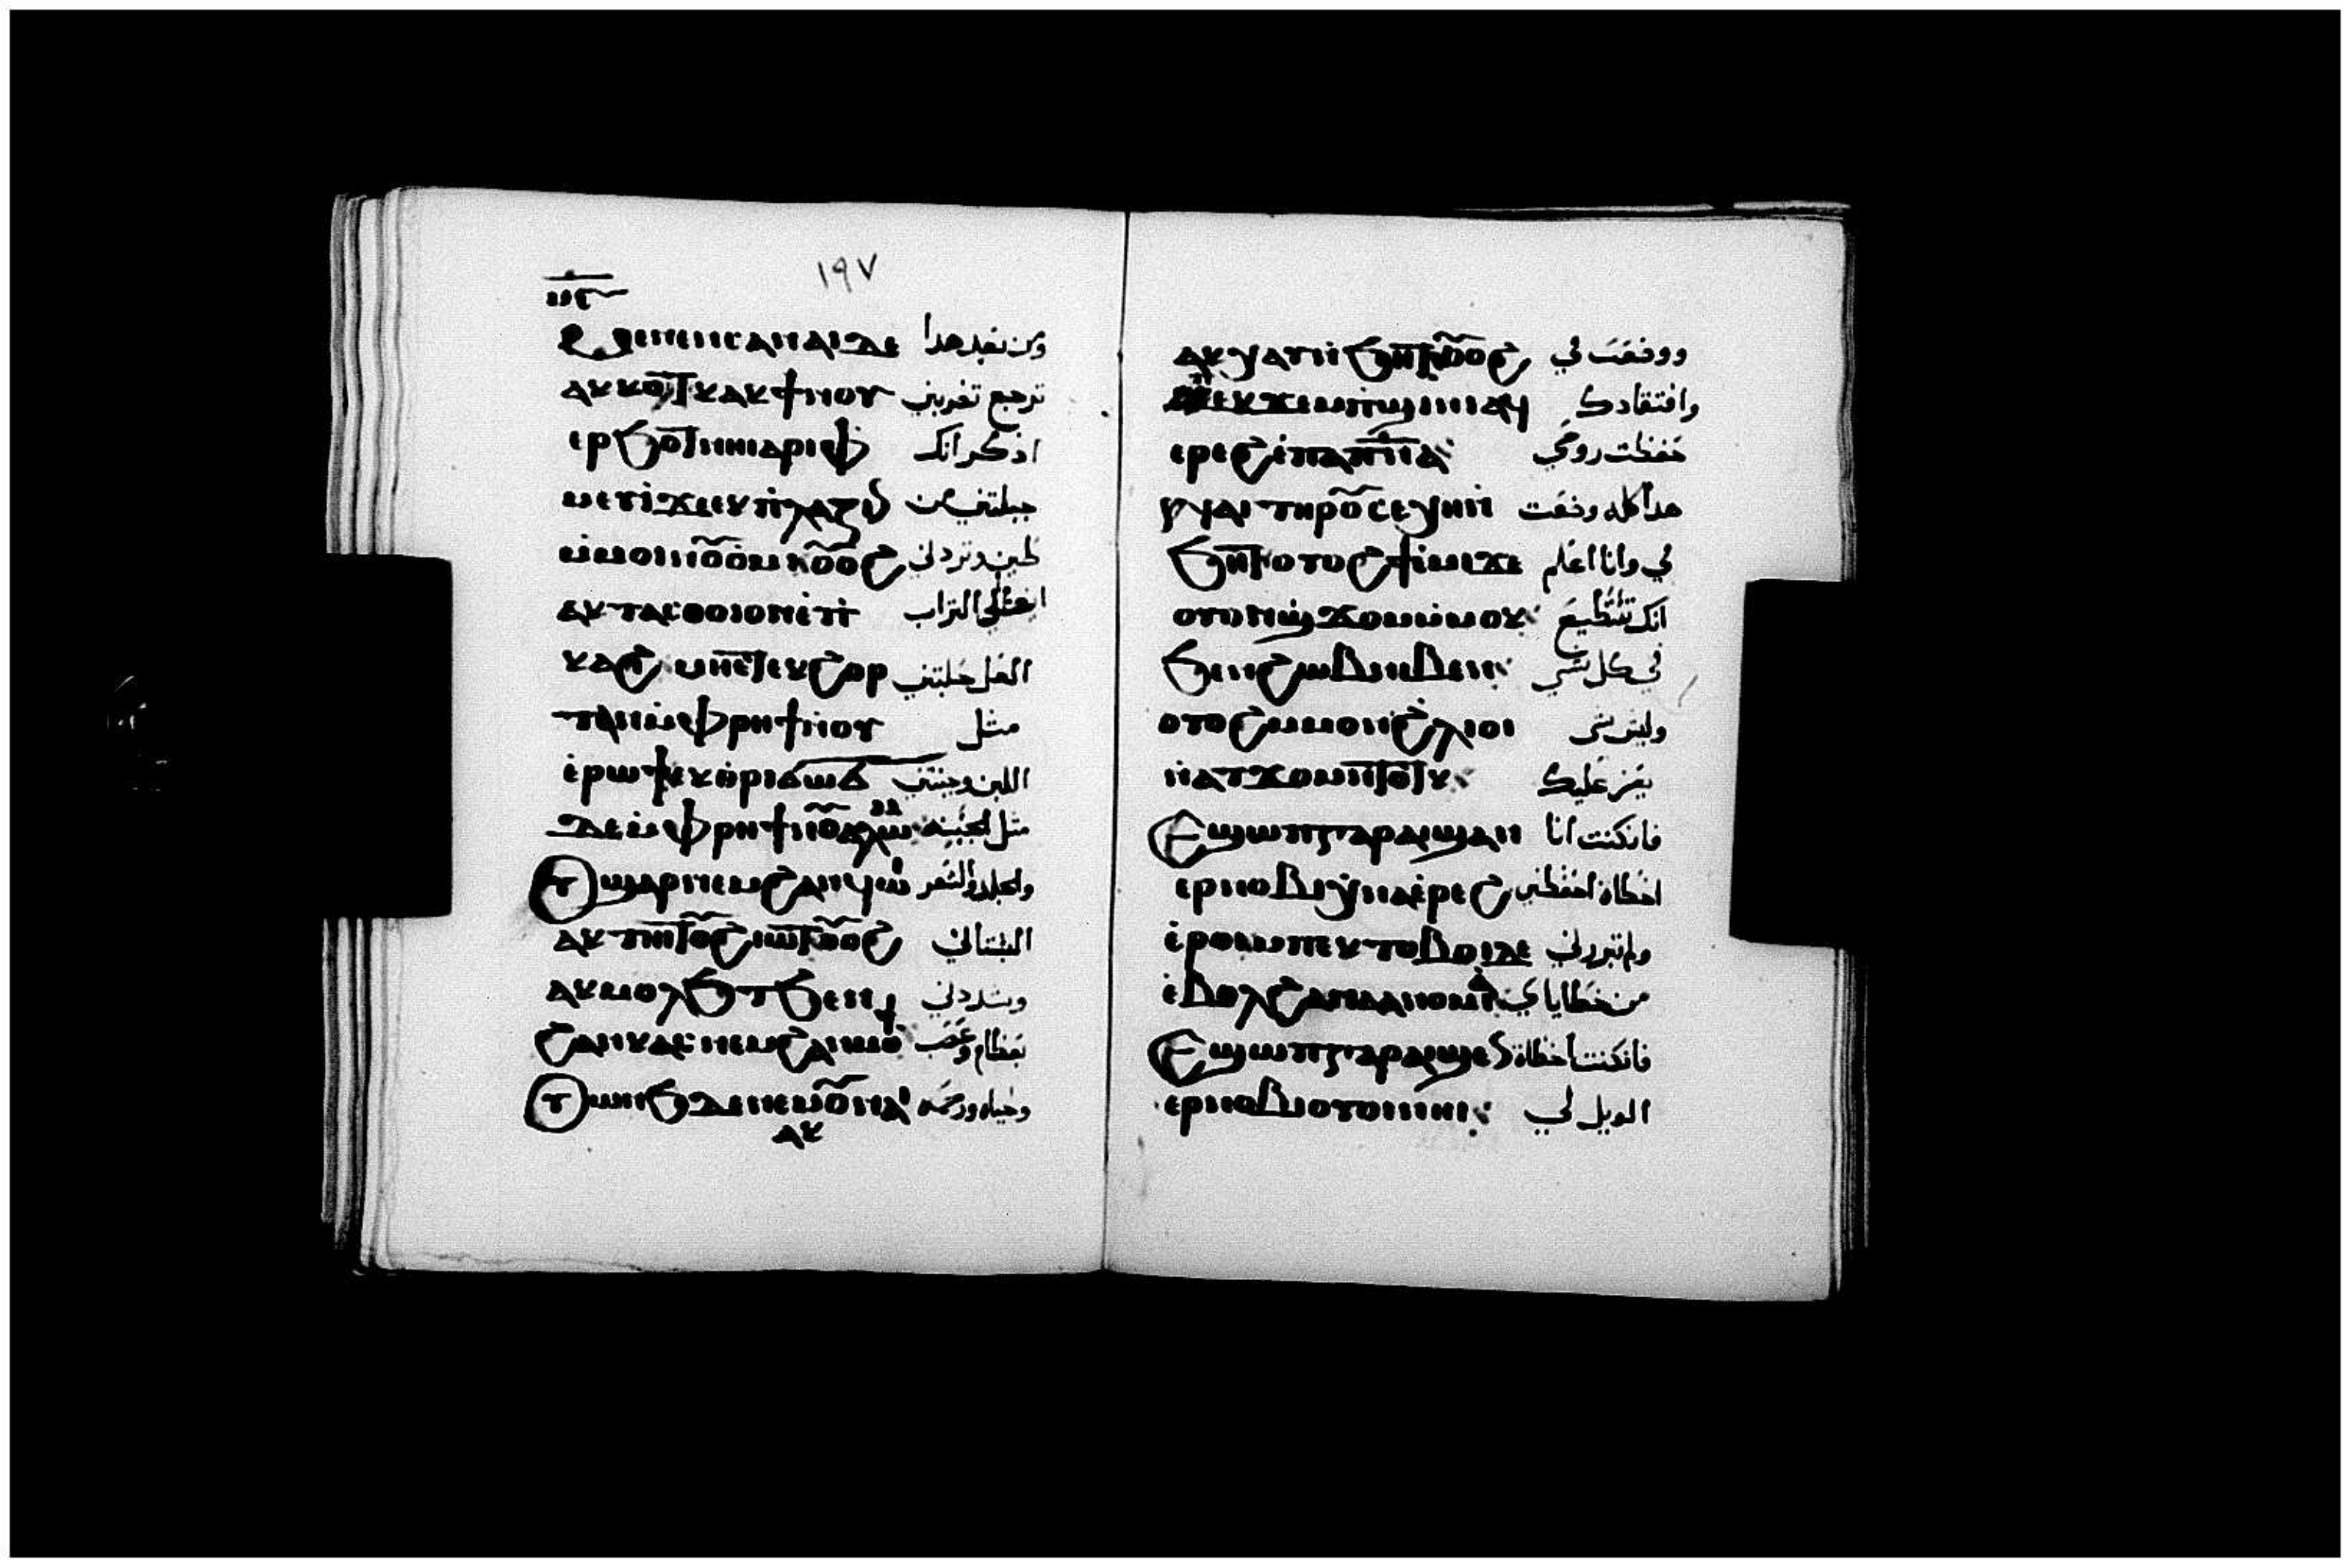 ١٩٧
ⲙⲉⲛⲉⲛⲥⲁⲛⲁⲓⲇⲉ ومن بعد هدا
ⲁⲕⲕⲟⲧⲕⲁⲕϯⲛⲟⲩ ترجع تضربني
ⲉⲣϧⲟⲧ ⲛⲓⲁⲣⲓⲫ اذكر انك
ⲙⲉⲩⲓϫⲉⲕⲡⲗⲁⲍⲓⲛ جبلتني من
ⲙⲙⲟⲓⲛⲟⲟⲙⲕⲟⲟϩ طين وتردني
ⲁⲕⲧⲁⲥⲑⲟⲓⲟⲛⲉⲡⲓ الى التراب
ⲕⲁϩ ⲙⲏⲉⲧⲉⲕϩⲟⲣ العل حلبتني
ⲧⲁⲛⲙⲫⲣⲏϯⲛⲟⲩ مثل
ⲉⲣⲱϯⲉⲕⲟⲣⲓⲁⲱⲇ اللبن وجبنتني
ⲇⲉⲙⲫⲣⲏϯⲛⲟⲩϩⲁⲗⲱⲙ مثل الجبنه
ⲟⲩϣⲁⲣⲛⲉⲙϩⲁⲛϥⲱⲓ والجلد والشعر
ⲁⲕⲧⲏⲓⲧⲟⲩϩⲓⲱⲧⲟⲩ البستاني
ⲁⲕⲙⲟⲗϧⲧϧⲉⲛ وشددني
ϩⲁⲛⲕⲁⲥⲛⲉⲙϩⲁⲛⲙⲟⲩ بعظام وعصب
ⲟⲩⲱⲛϧⲇⲉⲛⲉⲙⲟⲩⲛⲁⲓ وحياه ورحمه
ⲁⲕ
ⲁⲕⲭⲁⲩⲛϧⲏⲧ ووضعت لي
ⲡⲉⲕϫⲉⲙⲡϣⲓⲛⲓⲁϥ وافتقادك
ⲉⲣⲉϩⲉⲡⲁⲡⲛⲁ حفظت روحي
ⲛⲁⲓⲧⲏⲣⲟⲩⲥⲉⲭⲏⲛ هدا كله وضعت
ϧⲏⲧⲕⲟⲩⲟϩϯⲉⲙⲓϫⲉ لي وانا اعلم
ⲟⲩⲟⲛϣϫⲟⲙⲙⲙⲟⲕ انك تستطيع
ϧⲉⲛϩⲱⲃⲛⲓⲃⲉⲛ في كل شي
ⲟⲩⲟϩⲙⲙⲟⲛϩⲗⲓⲟⲓ وليس شي
ⲛⲁⲧϫⲟⲙⲛⲧⲟⲧⲕ يعز عليك
ⲉϣⲱⲡⲅⲁⲣⲁⲓϣⲁⲛ فان كنت انا
ⲉⲣⲛⲟⲃⲓⲭⲛⲁⲁⲣⲉϩ اخطاة احفظني
ⲉⲣⲟⲓⲙⲡⲉⲕⲧⲟⲩⲃⲟⲓⲇⲉ ولم تبررني
ⲉⲃⲟⲗϩⲁⲛⲁⲁⲛⲟⲙⲓⲁ من خطاياي
ⲉϣⲱⲡⲅⲁⲣⲁⲓϣⲁⲛ فان كنت اخطاة
ⲉⲣⲛⲟⲃⲓⲟⲩⲟⲓⲛⲏⲓ الويل لي